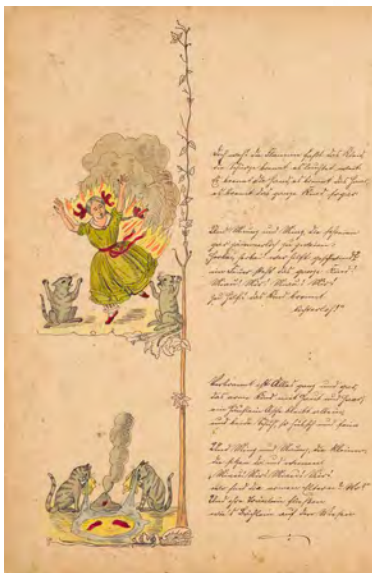 Doch weh! die Flamme faßt das Kleid
die Schürze brennt, es leuchtet weit
Es brennt die Hand, es brennt das Haar,
es brennt das ganze Kind sogar
Und die schreien
gar jämmerlich zu zweien:
Herbei, herbei! wer hilft geschwind?
im Feuer steht das ganze Kind!
Miau! Mio! Miau! Mio!
zu Hilf! das Kind brennt
lichterloh!"
Verbrannt ist Alles ganz und gar,
das arme Kind mit Haut und Haar,
ein Häuflein Asche bleibt allein
und beide Schuh, so hübsch und fein
Und Minz und Maunz, die kleinen,
die sitzen da und weinen
Miau! Mio! Miau! Mio!
wo sind die armen Eltern? Wo?"
Und ihre Thränen fließen
wie's Bächlein auf der Wiesen